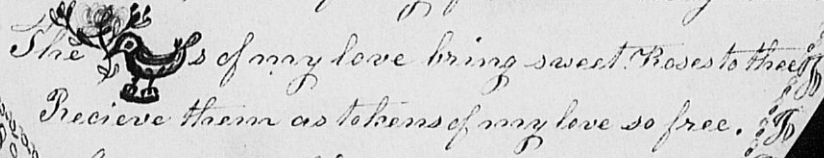 The s of my love bring sweet Roses to thee
Recieve them as tokens of my love so free. To